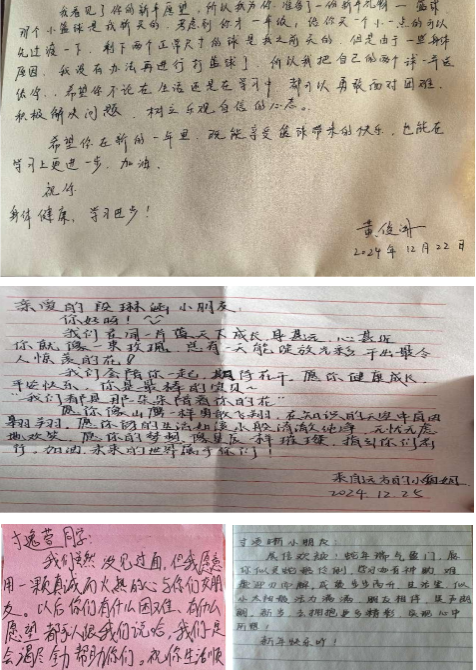 我看见了你的新年愿望，所以我为你准备了一份新年礼物——篮球
那个小篮球是我新买的，考虑到你才一年级，给你买一个小一点的可以
先过渡一下，剩下两个正常大小的球是我之前买的，但是由于一些身体
原因，我没有办法再进行打篮球了，所以我把自己的两个球一并送
给你，希望你不论在生活还是在学习中，都可以勇敢面对困难，
积极解决问题，树立乐观自信的心态。
希望你在新的一年里，既能享受篮球带来的快乐，也能在
学习上更进一步，加油。
祝你
身体健康，学习进步！
2024年12月22日
亲爱的段琳 小朋友：
你好呀！
我们在同一片蓝天下成长，身甚远，心甚近
你就像一束玫瑰，总有一天能绽放光彩，开出最令
人惊羡的花！
我们会陪你一起，期待花开，愿你健康成长，
平安快乐，你是最棒的宝贝~
“我们都是那朵朵陪着你的花”
愿你像山鹰一样勇敢飞翔，在知识的天空中自由
翱翔，愿你的生活如溪水般清澈纯净，无忧无虑
地欢笑，愿你的梦想像星辰一样璀璨，指引你们前
行，加油，未来的世界属于你们！
来自远方的小姐姐
2024.12.25
寸逸萱同学：
我们虽然没见过面，但我愿意
用一颗真诚而火热的心与你们交朋
友。以后你们有什么困难、有什么
愿望都可以跟我们说哈，我们是
会竭尽全力帮助你们。祝你生活愉
小朋友：
展信欢颜！蛇年瑞气盈门，愿
你似灵蛇般伶俐，学习如有神助，难
题迎刃而解，成绩步步高升，且生活似
小太阳般活力满满，朋友相伴，笑声朗
朗，新岁，去拥抱更多精彩，实现心中
所愿！
新年快乐呀！